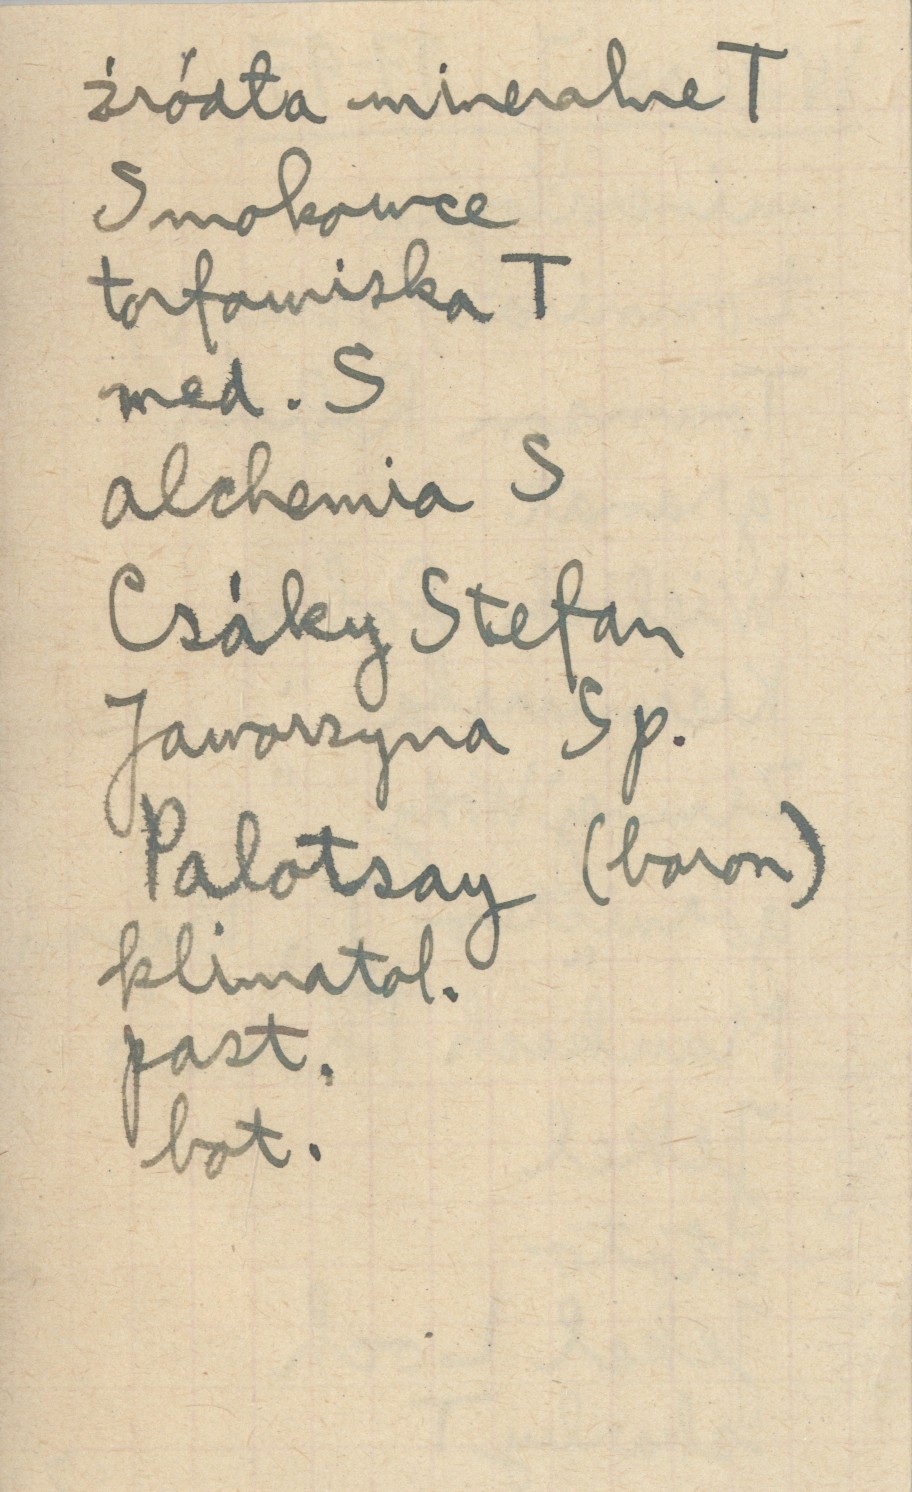 źródła mineralne T
Smokowce
torfowiska T
med. S
alchemia S
Csáky Stefan
Jaworzyna Sp.
Palotsay (baron)
klimatol.
past.
bot.